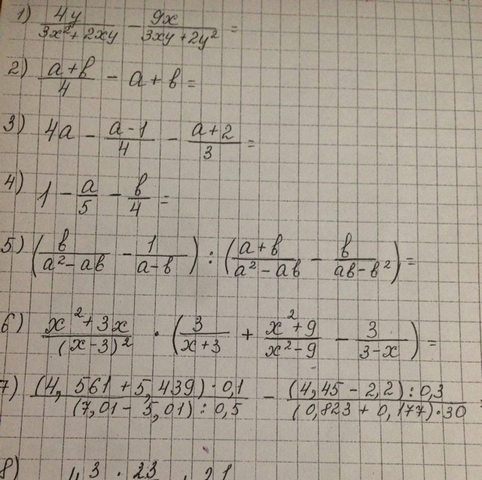 1) 4y/(3x²+2xy) - 9x/(3xy+2y²) =
2) (a+b)/4 - a+b =
3) 4a - (a-1)/4 - (a+2)/3 =
4) 1 - a/5 - b/4 =
5) (b/(a²-ab) - 1/(a-b)) : ((a+b)/(a²-ab) - b/(ab-b²)) =
6) (x²+3x)/(x-3)² · (3/(x+3) + (x²+9)/(x²-9) - 3/(3-x)) =
7) ((4,561+5,439)·0,1)/((7,01-5,01):0,5) - ((4,45-2,2):0,3)/((0,823+0,177)·30) =
8)